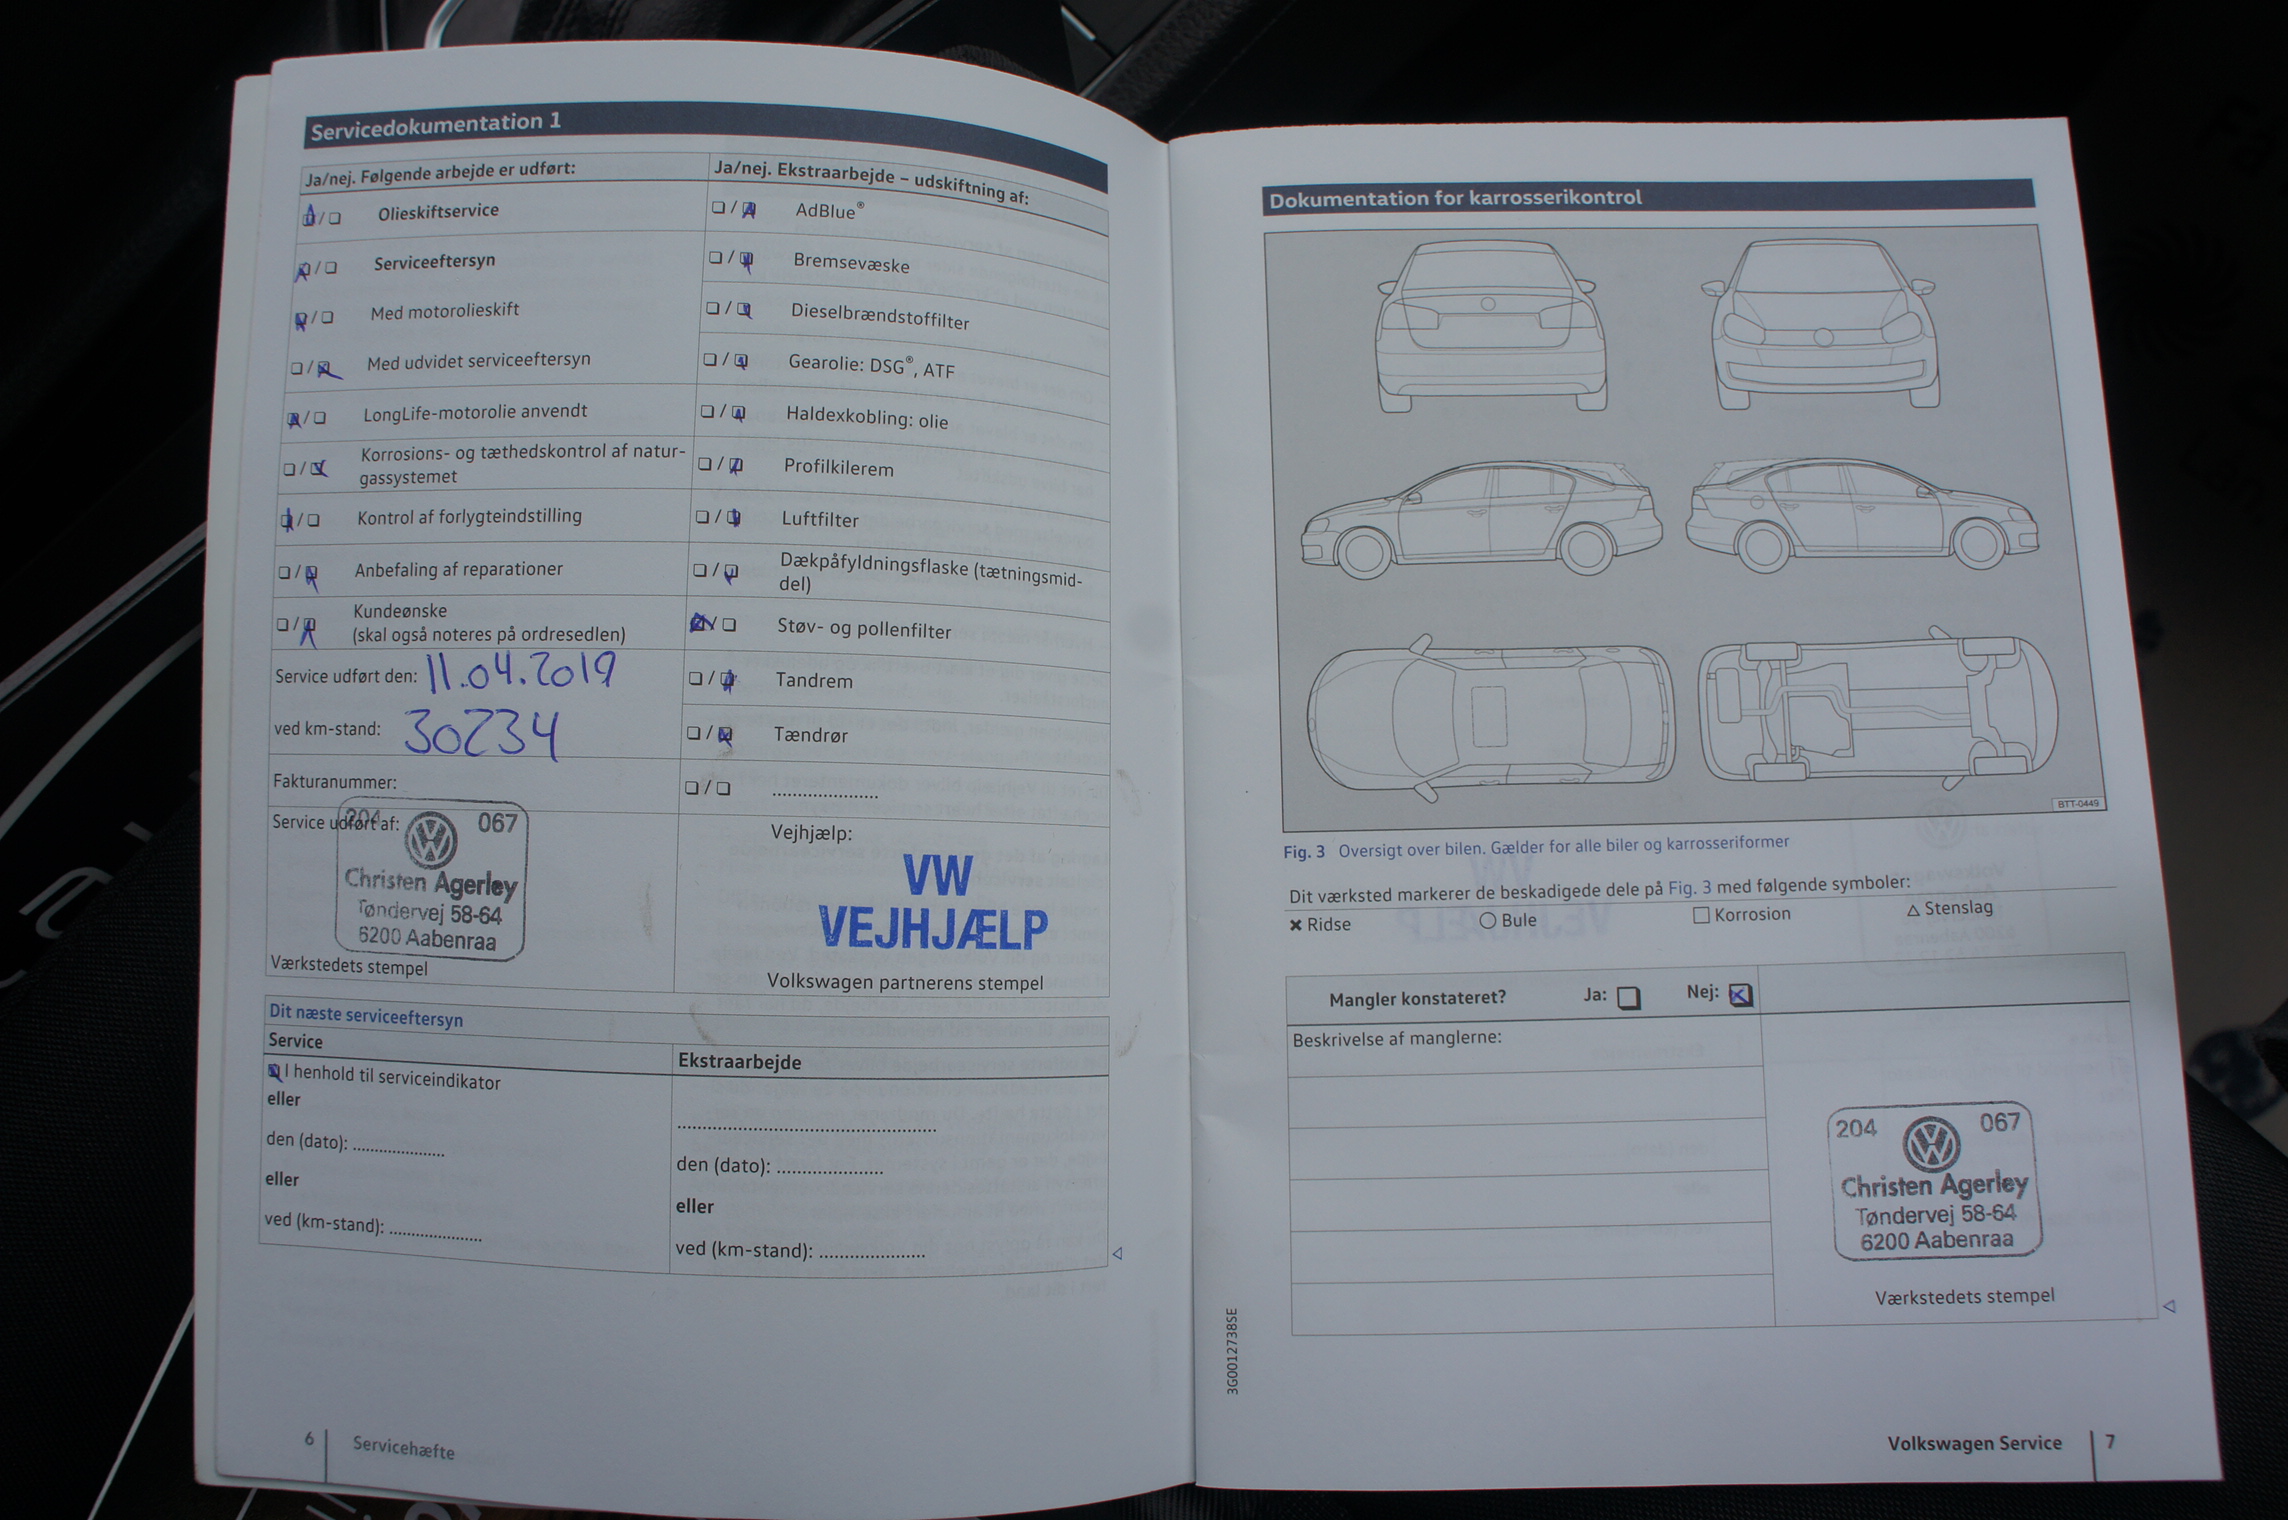 Servicedokumentation 1
Ja/nej. Følgende arbejde er udført:
Ja/nej. Ekstraarbejde – udskiftning af:
/ Olieskiftservice
/ AdBlue®
/ Serviceeftersyn
/ Bremsevæske
/ Med motorolieskift
/ Dieselbrændstoffilter
/ Med udvidet serviceeftersyn
/ Gearolie: DSG®, ATF
/ LongLife-motorolie anvendt
/ Haldexkobling: olie
/ Korrosions- og tæthedskontrol af natur-
gassystemet
/ Profilkilerem
/ Kontrol af forlygteindstilling
/ Luftfilter
/ Anbefaling af reparationer
/ Dækpåfyldningsflaske (tætningsmid-
del)
/ Kundeønske
(skal også noteres på ordresedlen)
/ Støv- og pollenfilter
Service udført den: 11.04.2019
/ Tandrem
ved km-stand: 30234
/ Tændrør
Fakturanummer:
/ ......................
Service udført af:
204 067
Christen Agerley
Tøndervej 58-64
6200 Aabenraa
Værkstedets stempel
Vejhjælp:
VW
VEJHJÆLP
Volkswagen partnerens stempel
Dit næste serviceeftersyn
Service
I henhold til serviceindikator
eller
den (dato): ...................
eller
ved (km-stand): ...................
Ekstraarbejde
.....................................................
den (dato): ......................
eller
ved (km-stand): ......................
6 Servicehæfte
Dokumentation for karrosserikontrol
BTT-0449
Fig. 3 Oversigt over bilen. Gælder for alle biler og karrosseriformer
Dit værksted markerer de beskadigede dele på Fig. 3 med følgende symboler:
✖ Ridse ○ Bule □ Korrosion △ Stenslag
Mangler konstateret? Ja: Nej:
Beskrivelse af manglerne:
204 067
Christen Agerley
Tøndervej 58-64
6200 Aabenraa
Værkstedets stempel
3G0012738SE
Volkswagen Service 7